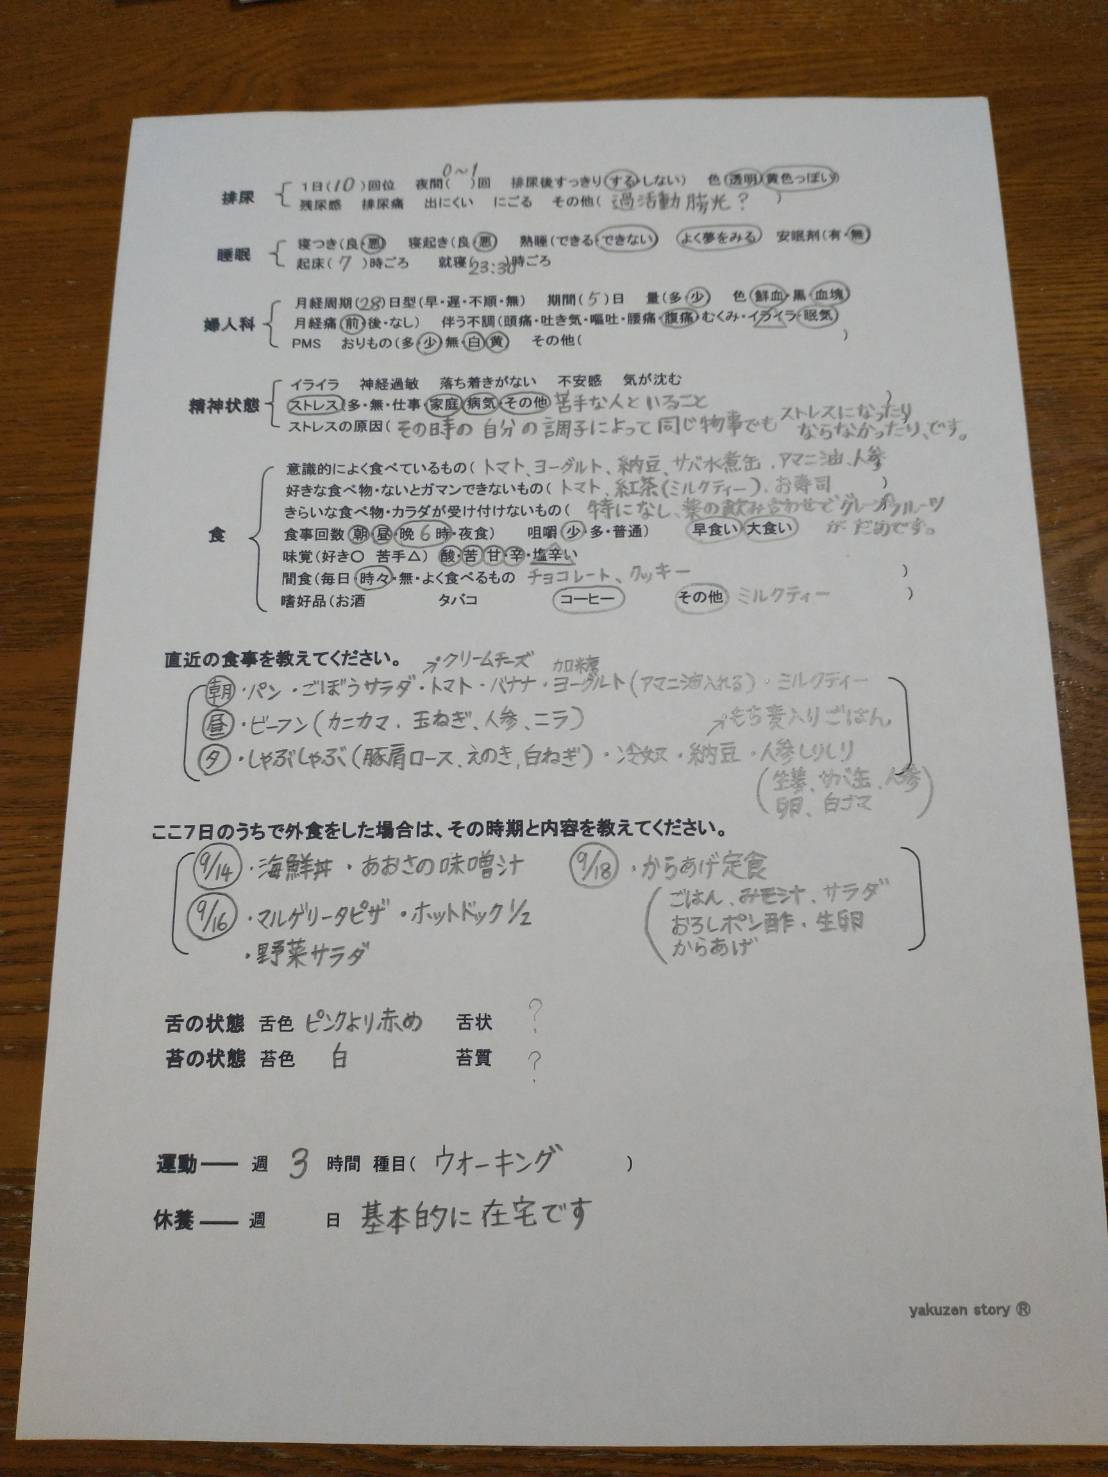 排尿 1日(10)回位 夜間(0~1)回 排尿後すっきり(する・しない) 色(透明・黄色っぽい)
残尿感 排尿痛 出にくい にごる その他(過活動膀光?)
睡眠 寝つき(良・悪) 寝起き(良・悪) 熟睡(できる・できない) よく夢をみる 安眠剤(有・無)
起床(7)時ごろ 就寝(23:30)時ごろ
婦人科 月経周期(28)日型(早・遅・不順・無) 期間(5)日 量(多・少) 色(鮮血・黒・血塊)
月経痛(前・後・なし) 伴う不調(頭痛・吐き気・嘔吐・腰痛・腹痛・むくみ・イライラ・眠気)
PMS おりもの(多・少・無・白・黄) その他( )
精神状態 イライラ 神経過敏 落ち着きがない 不安感 気が沈む
ストレス(多・無・仕事・家庭・病気・その他 苦手な人といること )
ストレスの原因(その日時の自分の調子によって同じ物事でもストレスになったり
ならなかったり、です。
食 意識的によく食べているもの(トマト、ヨーグルト、納豆、サバ水煮缶、アマニ油、人参
好きな食べ物・ないとガマンできないもの(トマト、紅茶(ミルクティー)、お寿司 )
きらいな食べ物・カラダが受け付けないもの( 特になし、薬の飲み合わせでグレープフルーツ
がだめです。
食事回数(朝・昼・晩6時・夜食) 咀嚼(少・多・普通) 早食い 大食い
味覚(好き○ 苦手△) 酸・苦・甘・辛・塩辛い
間食(毎日・時々・無・よく食べるもの チョコレート、クッキー )
嗜好品(お酒 タバコ コーヒー その他 ミルクティー )
直近の食事を教えてください。
クリームチーズ 加糖
朝・パン・ごぼうサラダ・トマト・バナナ・ヨーグルト(アマニ油入れる)・ミルクティー
昼・ビーフン(カニカマ、玉ねぎ、人参、ニラ) もち麦入りごはん
夕・しゃぶしゃぶ(豚肩ロース、えのき、白ねぎ)・冷奴・納豆・人参しりしり
(生姜、サバ缶、人参
卵、白ゴマ)
ここ7日のうちで外食をした場合は、その時期と内容を教えてください。
9/14・海鮮丼・あおさの味噌汁 9/18・からあげ定食
(ごはん、みそ汁、サラダ
9/16・マルゲリータピザ・ホットドック1/2
おろしポン酢・生卵
・野菜サラダ
からあげ
舌の状態 舌色 ピンクより赤め 舌状 ?
苔の状態 苔色 白 苔質 ?
運動── 週 3 時間 種目( ウオーキング )
休養── 週 日 基本的に在宅です
yakuzen story ®